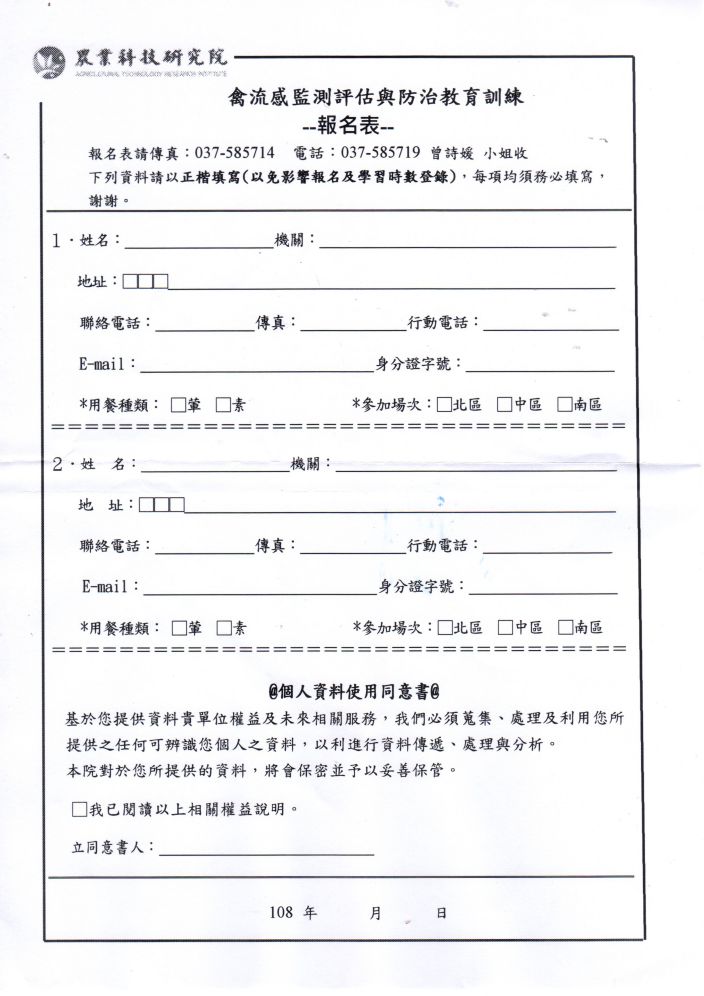 農業科技研究院
AGRICULTURAL TECHNOLOGY RESEARCH INSTITUTE
禽流感監測評估與防治教育訓練
--報名表--
報名表請傳真：037-585714 電話：037-585719 曾詩媛 小姐收
下列資料請以正楷填寫(以免影響報名及學習時數登錄)，每項均須務必填寫，
謝謝。
1．姓名：＿＿＿＿機關：＿＿＿＿
地址：□□□＿＿＿＿
聯絡電話：＿＿＿＿傳真：＿＿＿＿行動電話：＿＿＿＿
E-mail：＿＿＿＿身分證字號：＿＿＿＿
*用餐種類： □葷 □素 *參加場次：□北區 □中區 □南區
2．姓 名：＿＿＿＿機關：＿＿＿＿
地 址：□□□＿＿＿＿
聯絡電話：＿＿＿＿傳真：＿＿＿＿行動電話：＿＿＿＿
E-mail：＿＿＿＿身分證字號：＿＿＿＿
*用餐種類： □葷 □素 *參加場次：□北區 □中區 □南區
@個人資料使用同意書@
基於您提供資料貴單位權益及未來相關服務，我們必須蒐集、處理及利用您所
提供之任何可辨識您個人之資料，以利進行資料傳遞、處理與分析。
本院對於您所提供的資料，將會保密並予以妥善保管。
□我已閱讀以上相關權益說明。
立同意書人：＿＿＿＿
108 年 月 日